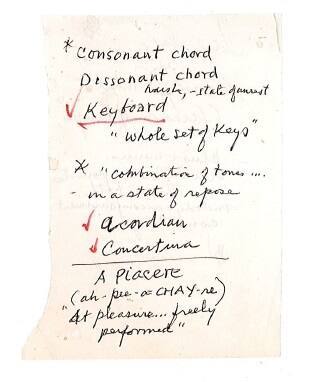 * Consonant chord
Dissonant chord
harsh, - state of unrest
✓ Keyboard
"whole set of Keys"
* "combination of tones....
- in a state of repose
✓ acordian
✓ Concertina
A Piacere
(ah-pee-a-CHAY-re)
"At pleasure... freely
performed"